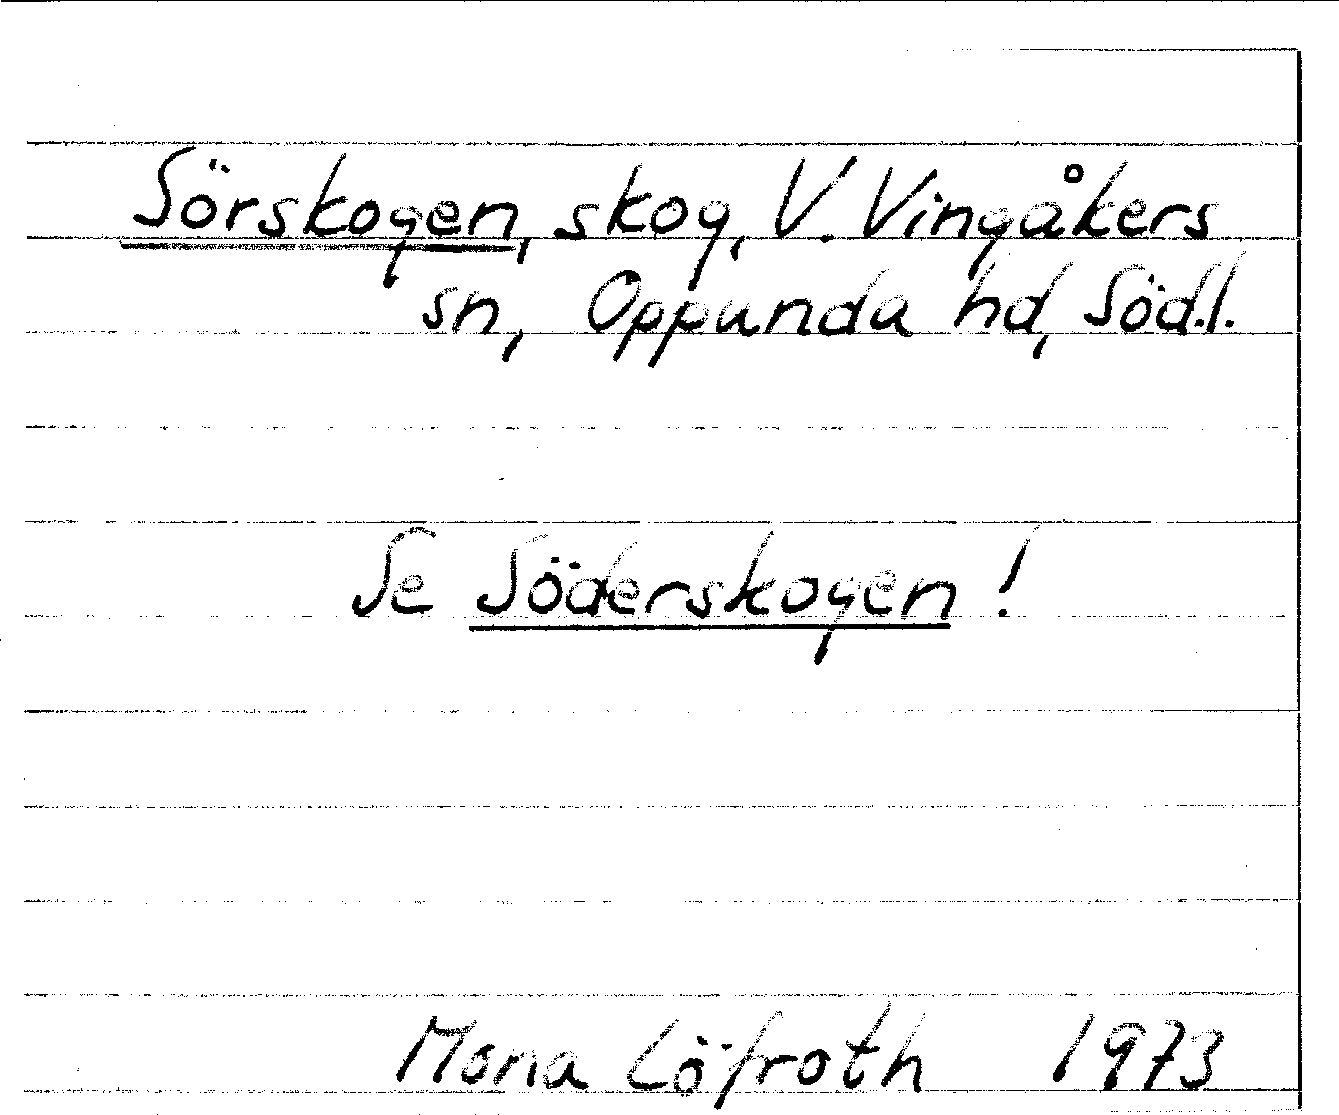 Sörskogen, skog, V. Vingåkers
sn, Oppunda hd, Södl.
Se Söderskogen!
Mona Löfroth 1973